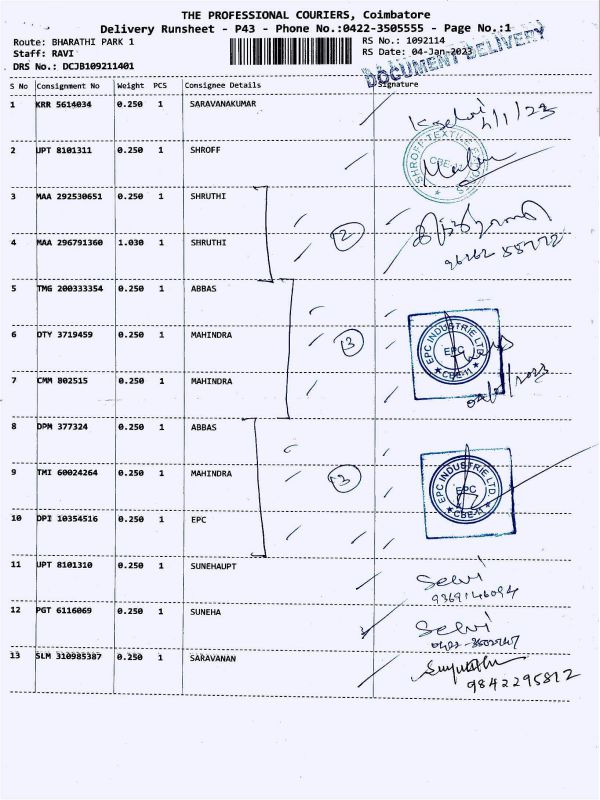 THE PROFESSIONAL COURIERS, Coimbatore
Delivery Runsheet - P43 - Phone No.:0422-3505555 - Page No.:1
Route: BHARATHI PARK 1 RS No.: 1092114
Staff: RAVI RS Date: 04-Jan-2023
DRS No.: DCJB109211401
DOCUMENT DELIVERY
S No Consignment No Weight PCS Consignee Details Signature
1 KRR 5614034 0.250 1 SARAVANAKUMAR
2 UPT 8101311 0.250 1 SHROFF
3 MAA 292530651 0.250 1 SHRUTHI
2
4 MAA 296791360 1.030 1 SHRUTHI
5 TMG 200333354 0.250 1 ABBAS
6 DTY 3719459 0.250 1 MAHINDRA 3
EPC INDUSTRIE LTD.
EPC
CBE-11
7 CMM 802515 0.250 1 MAHINDRA
8 DPM 377324 0.250 1 ABBAS
9 TMI 60024264 0.250 1 MAHINDRA 3
EPC INDUSTRIE LTD.
EPC
CBE-11
10 DPI 10354516 0.250 1 EPC
11 UPT 8101310 0.250 1 SUNEHAUPT Selvi
12 PGT 6116069 0.250 1 SUNEHA Selvi
13 SLM 310985387 0.250 1 SARAVANAN
9842295812